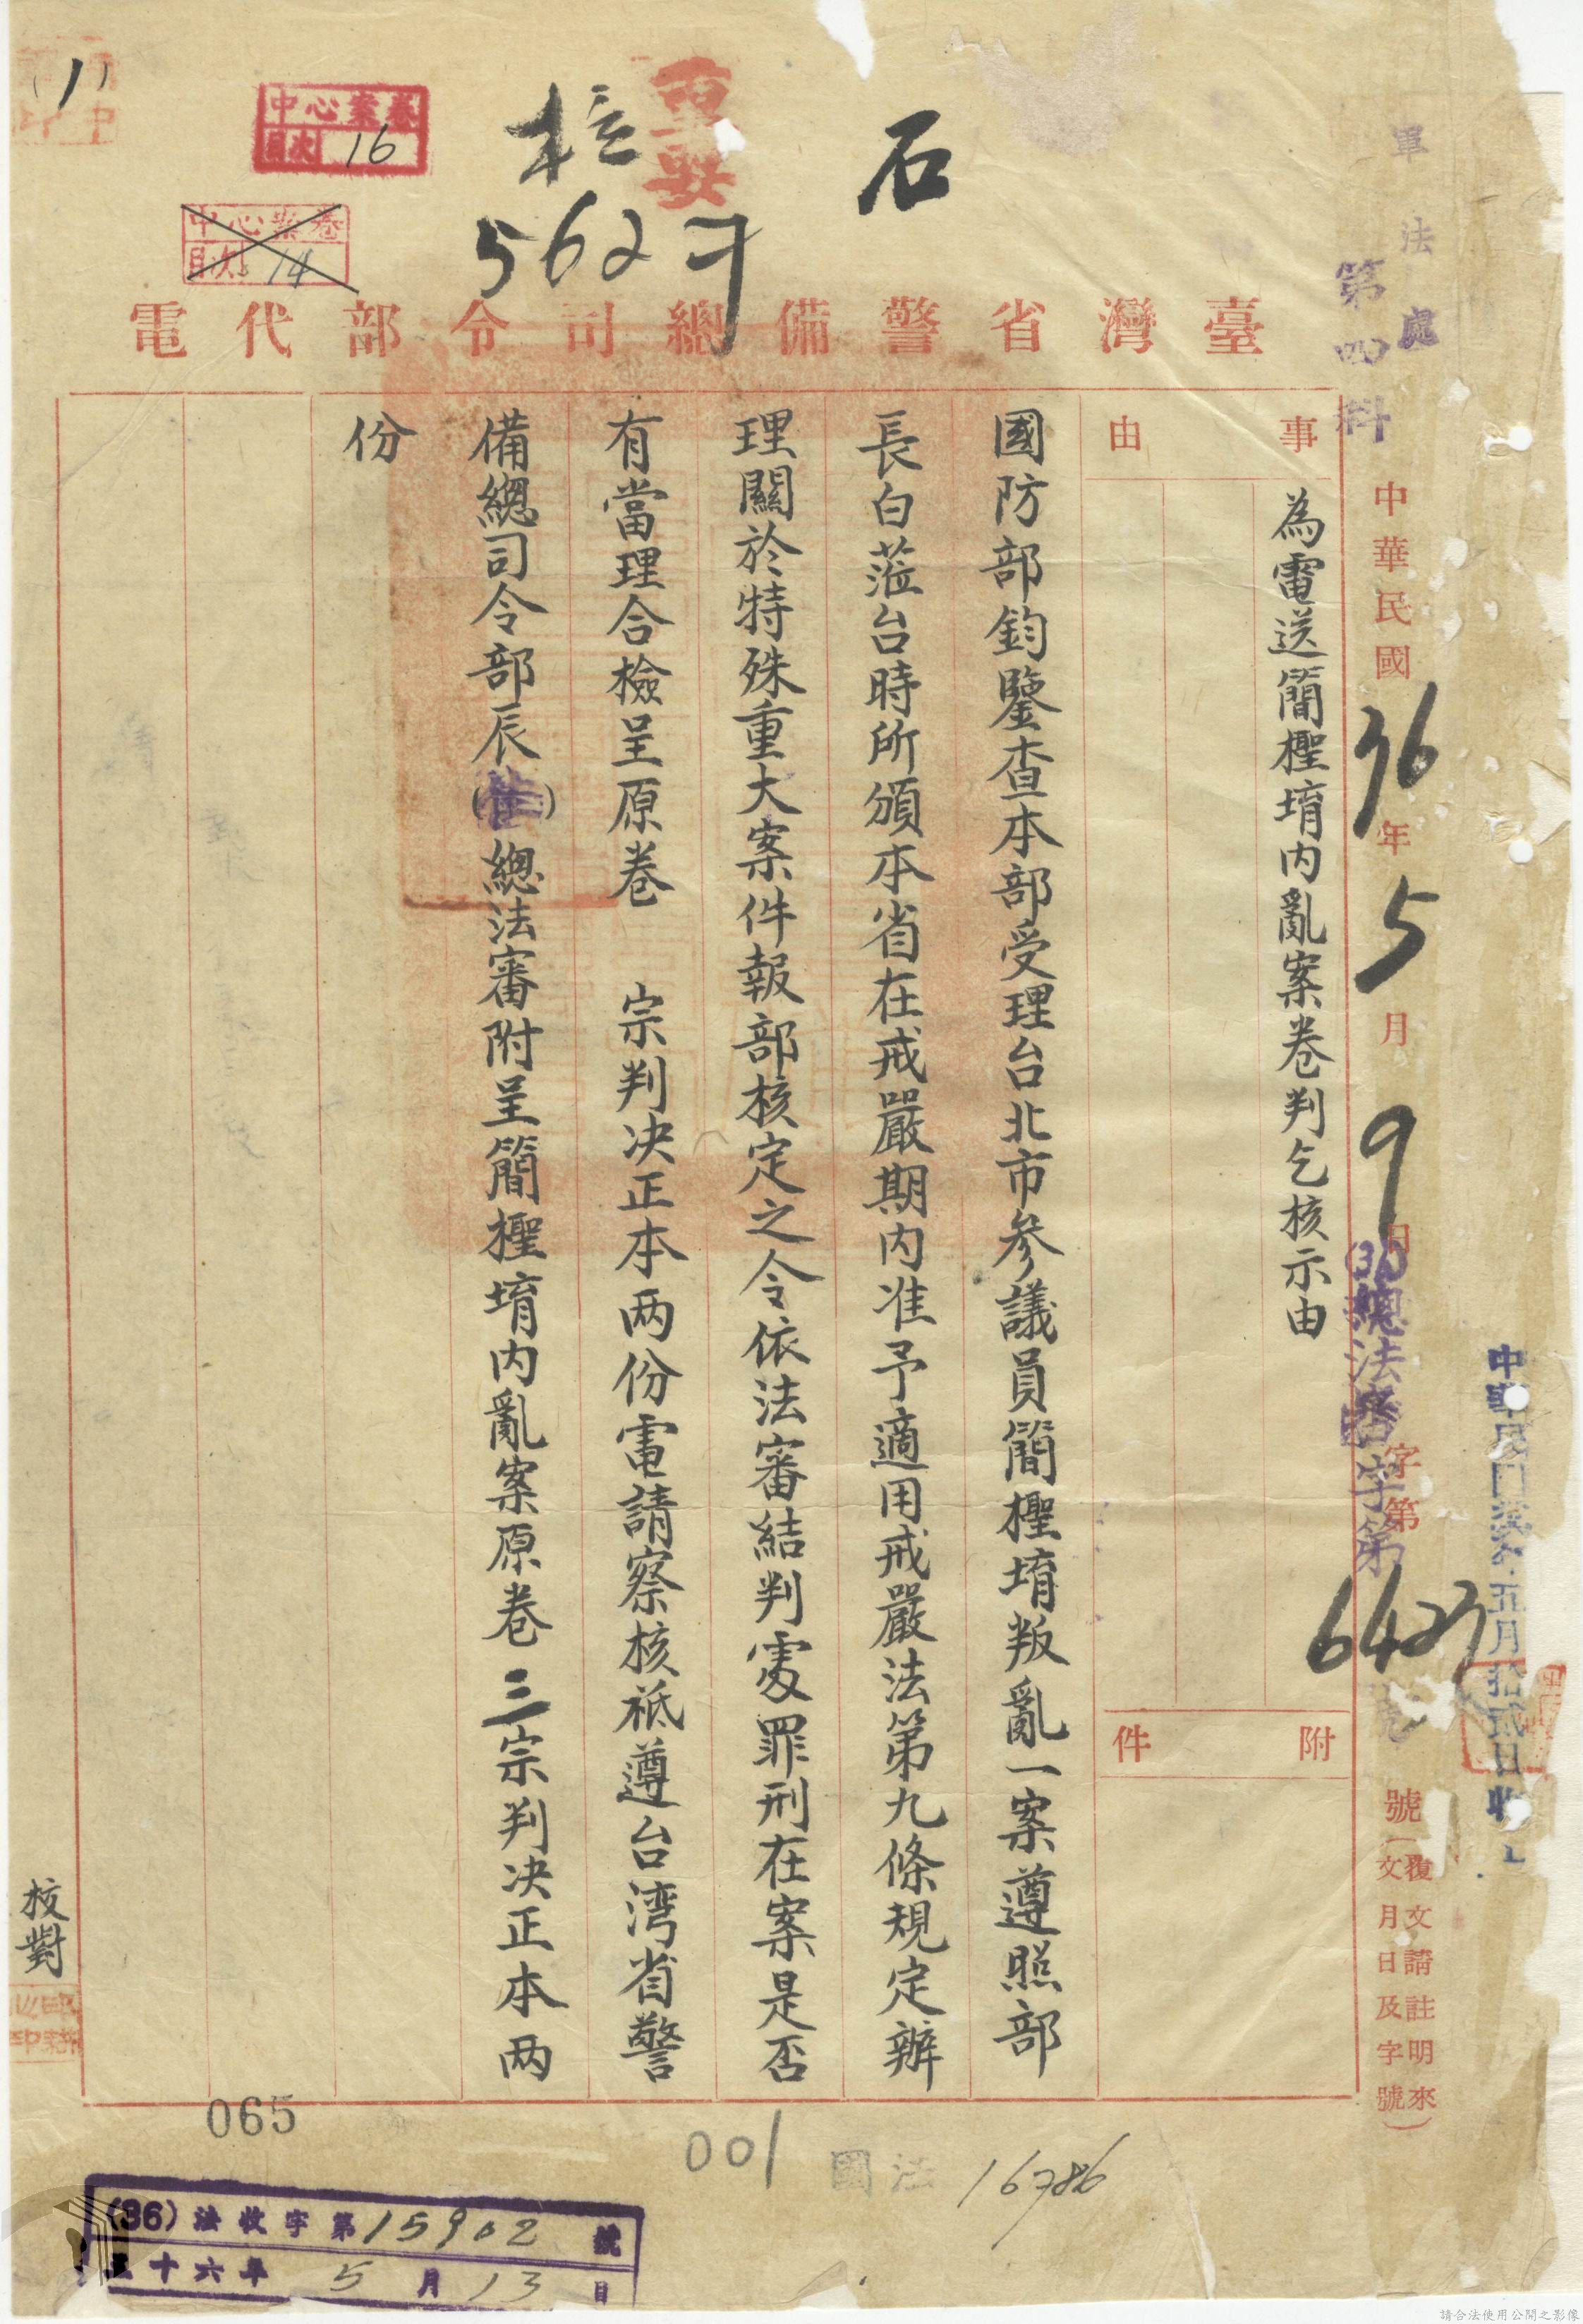 (1)
中心案卷
目次 16
中心案卷
目次 14
核
5627
重要
石
軍法處
第四科
臺灣省警備總司令部代電
中華民國36年5月9日
(36)總法審字第
字第6427號(覆文請註明來文月日及字號)
五月拾貳日收
事由
為電送簡檉堉內亂案卷判乞核示由
附件
國防部鈞鑒查本部受理台北市參議員簡檉堉叛亂一案遵照部
長白蒞台時所頒本省在戒嚴期內准予適用戒嚴法第九條規定辦
理關於特殊重大案件報部核定之令依法審結判處罪刑在案是否
有當理合檢呈原卷 宗判决正本两份電請察核祇遵台湾省警
備總司令部辰( )總法審附呈簡檉堉內亂案原卷三宗判决正本两
份
校對
065
001
國法 16786
(36)法收字第15902號
三十六年5月13日
請合法使用公開之影像